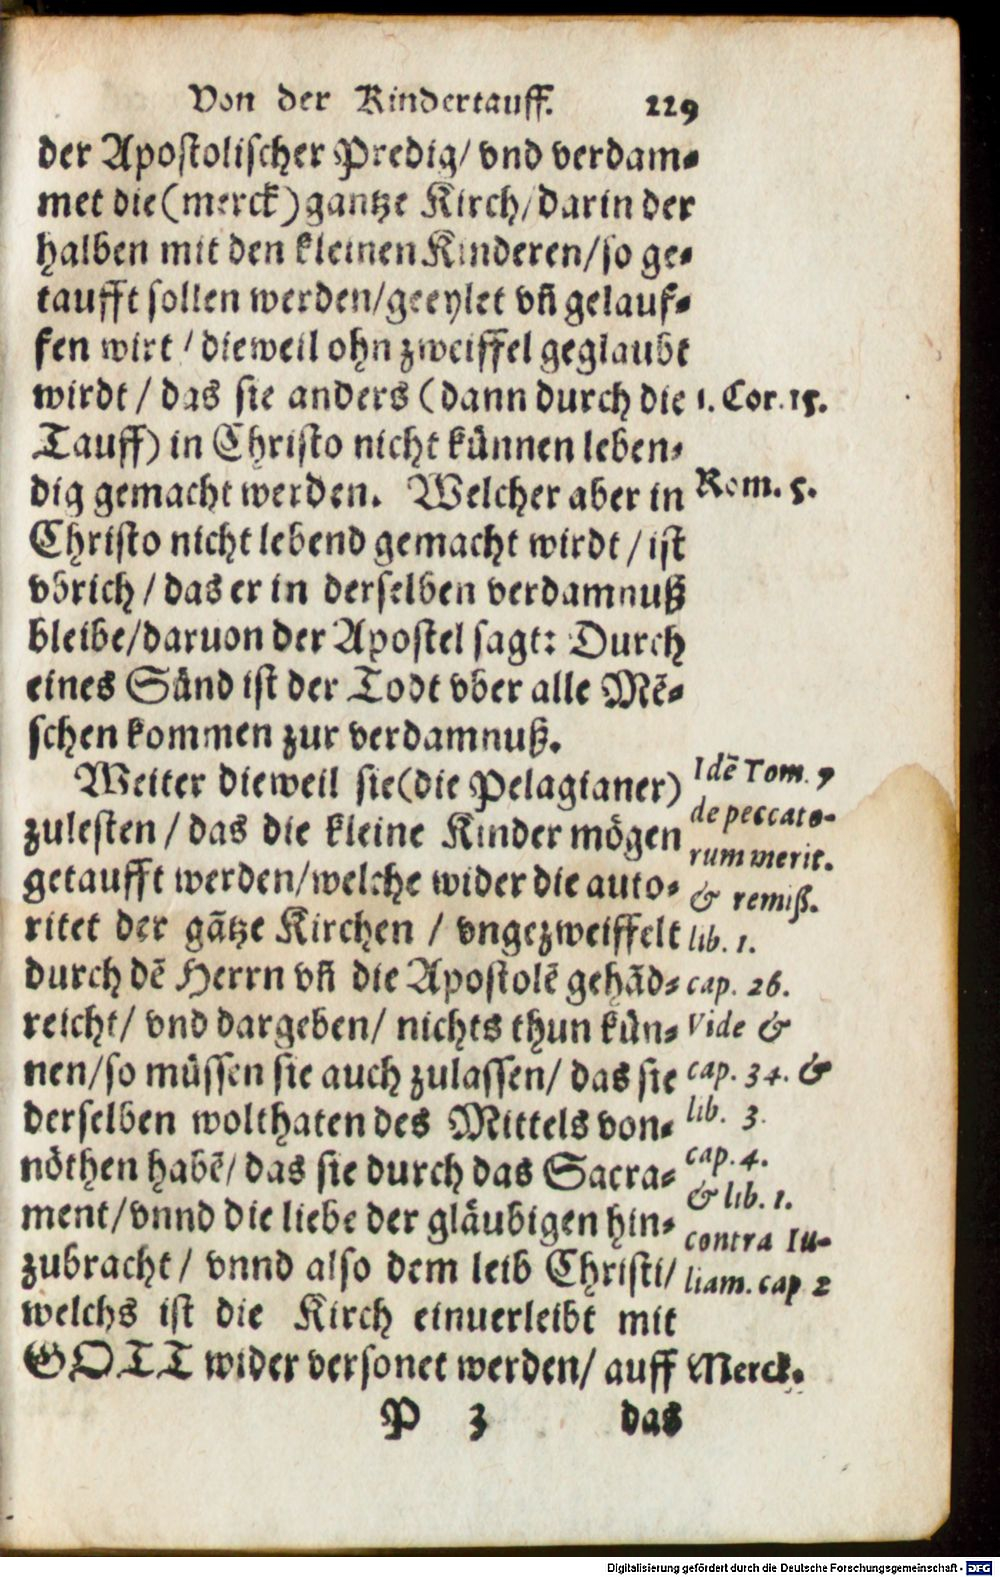 Von der Kindertauff. 229
der Apostolischer Predig/ vnd verdam-
met die (merck) gantze Kirch/ darin der
halben mit den kleinen Kinderen/ so ge-
taufft sollen werden/ geeylet vñ gelauf-
fen wirt / dieweil ohn zweiffel geglaubt
wirdt / das sie anders (dann durch die
1. Cor. 15.
Tauff) in Christo nicht künnen leben-
dig gemacht werden. Welcher aber in
Rom. 5.
Christo nicht lebend gemacht wirdt / ist
vbrich / das er in derselben verdamnuß
bleibe/ daruon der Apostel sagt: Durch
eines Sünd ist der Todt vber alle Mẽ-
schen kommen zur verdamnuß.
Weiter dieweil sie (die Pelagianer)
zulesten / das die kleine Kinder mögen
getaufft werden/ welche wider die auto-
ritet der gãtze Kirchen / vngezweiffelt
durch dẽ Herrn vñ die Apostolẽ gehãd-
reicht/ vnd dargeben/ nichts thun kün-
nen/ so müssen sie auch zulassen/ das sie
derselben wolthaten des Mittels von-
nöthen habẽ/ das sie durch das Sacra-
ment/ vnnd die liebe der gläubigen hin-
zubracht / vnnd also dem leib Christi/
welchs ist die Kirch einuerleibt mit
GOTT wider versonet werden/ auff
Idẽ Tom. 7
de peccato-
rum merit.
& remiß.
lib. 1.
cap. 26.
Vide &
cap. 34. &
lib. 3.
cap. 4.
& lib. 1.
contra Iu-
liam. cap 2
Merck.
P 3 das
Digitalisierung gefördert durch die Deutsche Forschungsgemeinschaft - DFG